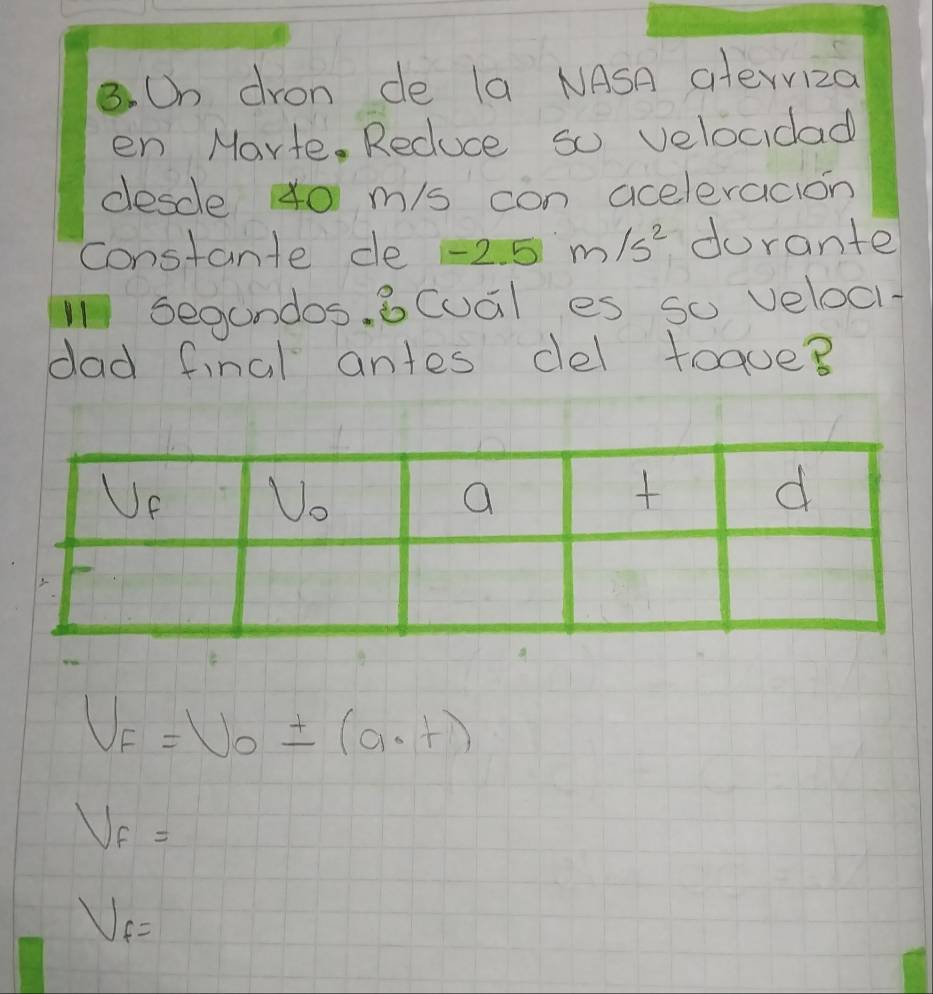 3. Un dron de la NASA aterriza
en Marte. Reduce su velocidad
desde 40 m/s con aceleración
constante de -2.5 m/s², durante
11 segundos. ¿Cuál es su veloci-
dad final antes del toque?
VF Vo a t d
VF = Vo ± (a·t)
VF =
Vf =